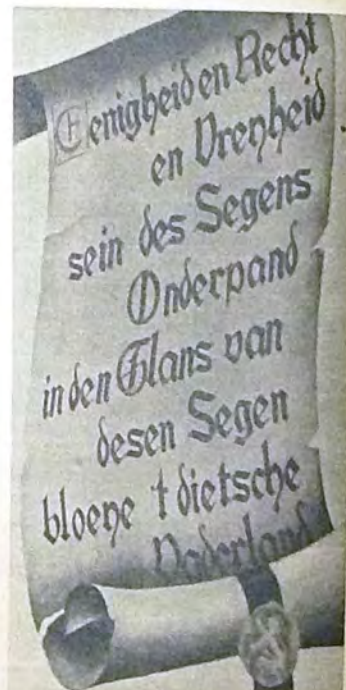 Eenigheid en Recht
en Vreyheid
sein des Segens
Onderpand
in den Glans van
desen Segen
bloeye 't dietsche
Vaderland